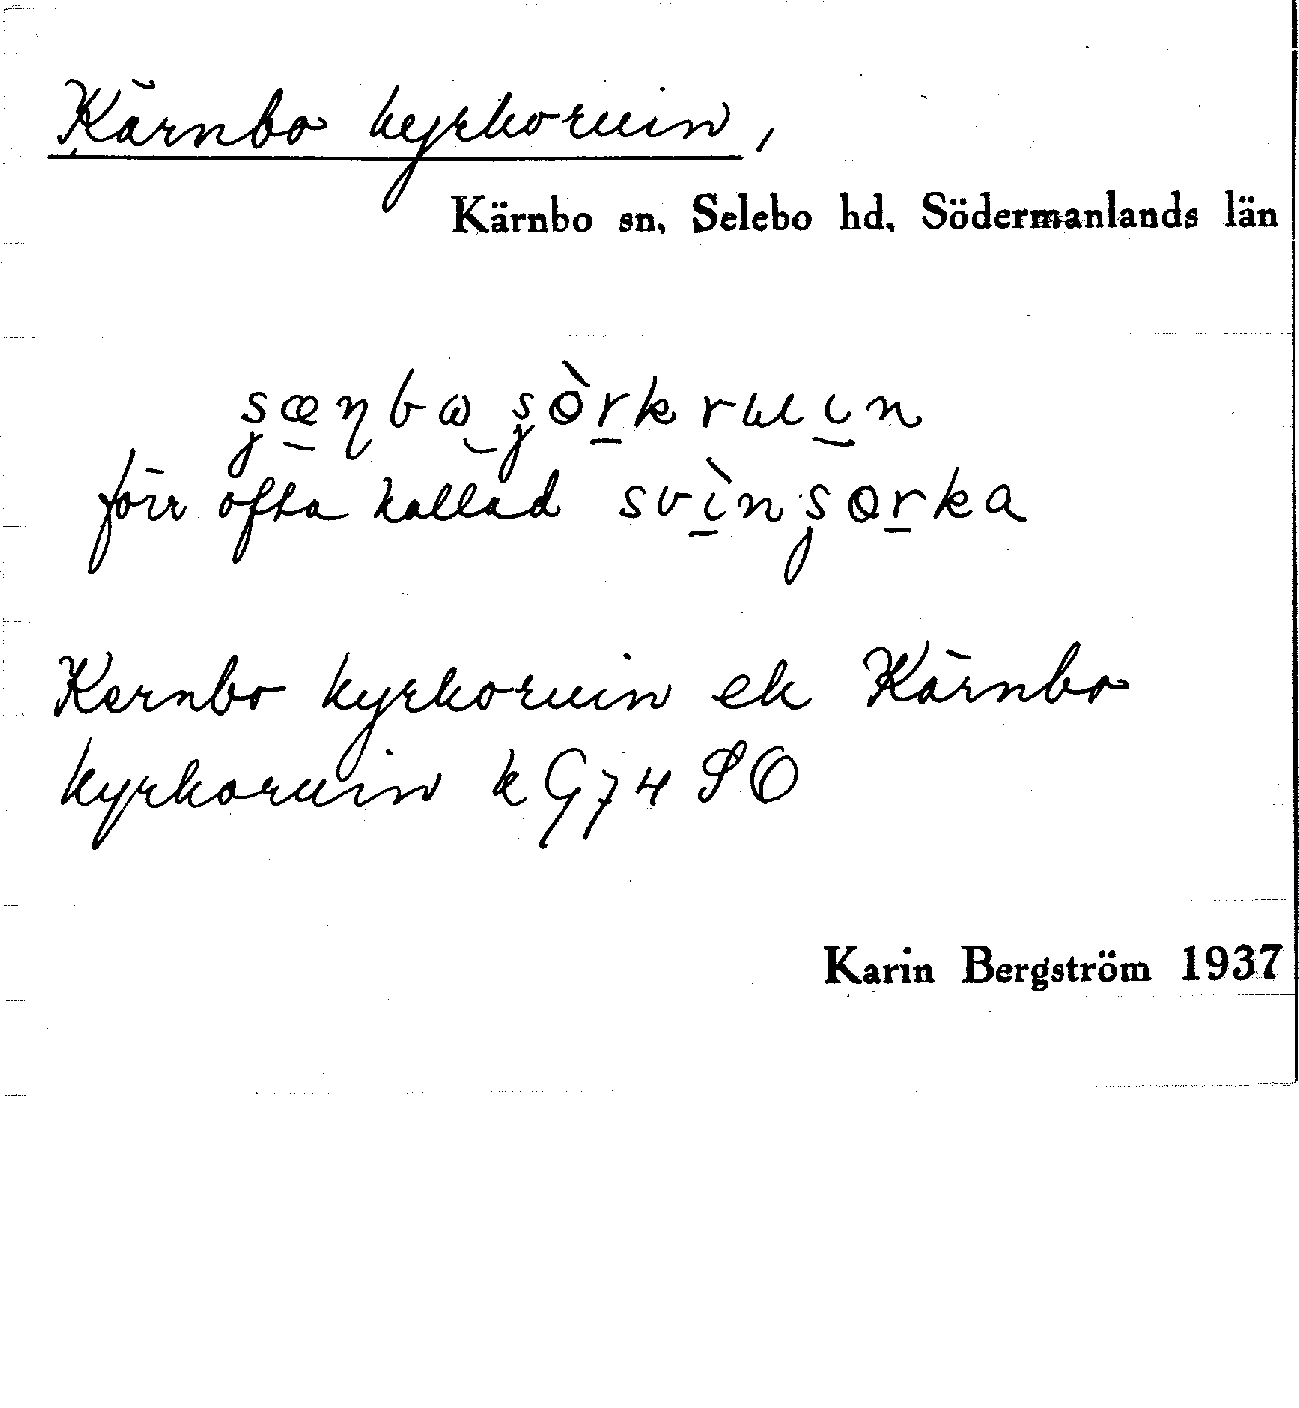 Kärnbo kyrkoruin,
Kärnbo sn, Selebo hd, Södermanlands län
förr ofta kallad
Kernbo kyrkoruin ek Kärnbo
kyrkoruin k G74 SO
Karin Bergström 1937